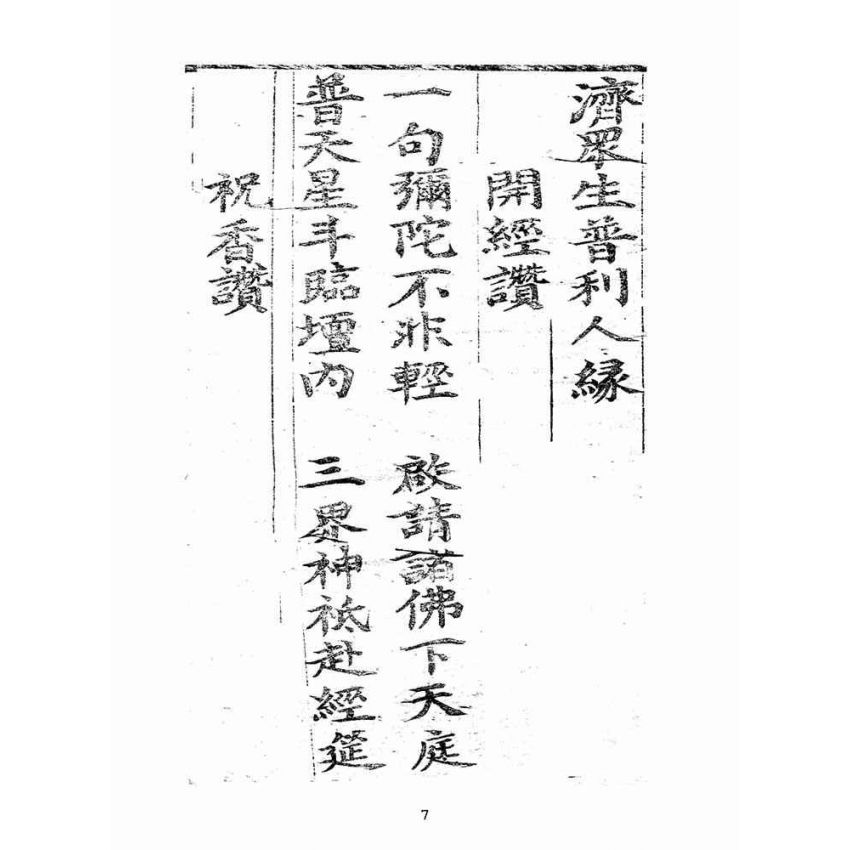 濟眾生普利人緣
開經讚
一句彌陀不非輕　啟請諸佛下天庭
普天星斗臨壇內　三界神祇赴經筵
祝香讚
7